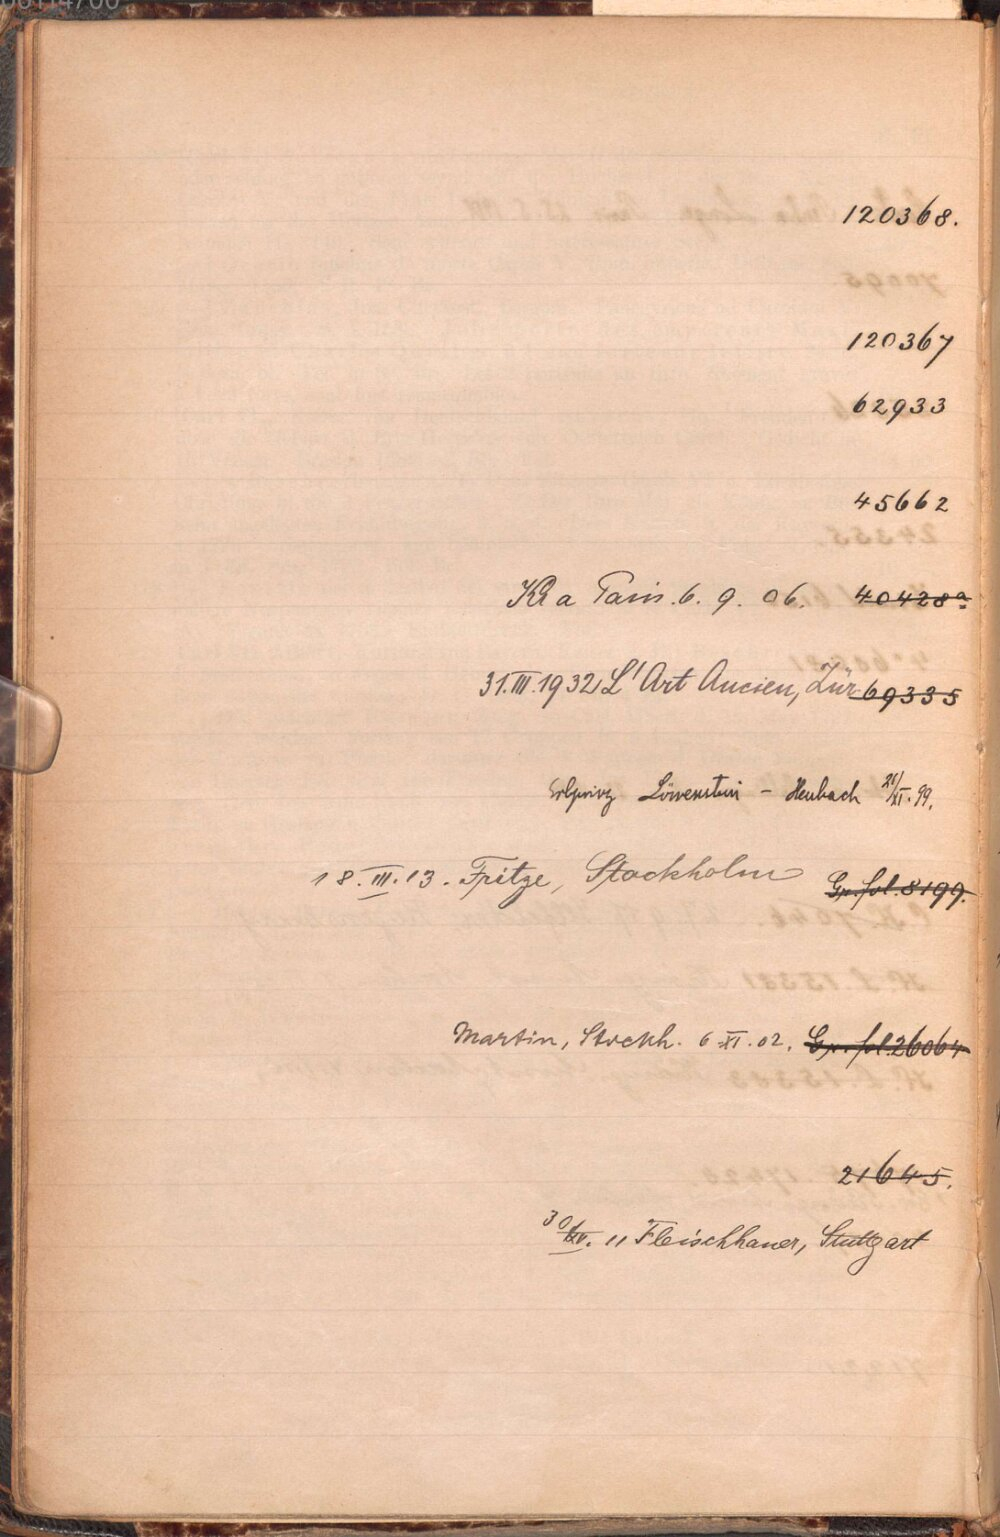 120368.
120367
62933
45662
Paris. 6. 9. 06. 40428a
31.III.1932 L'Art Ancien, Zür 69335
Erbprinz Löwenstein - Heubach 21/XI. 99.
18. III. 13. Fritze, Stockholm Gr. fol. 8199.
Martin, Stockh. 6 XI. 02. Gr. fol. 26064
21645.
30/IV. 11 Fleischhauer, Stuttgart